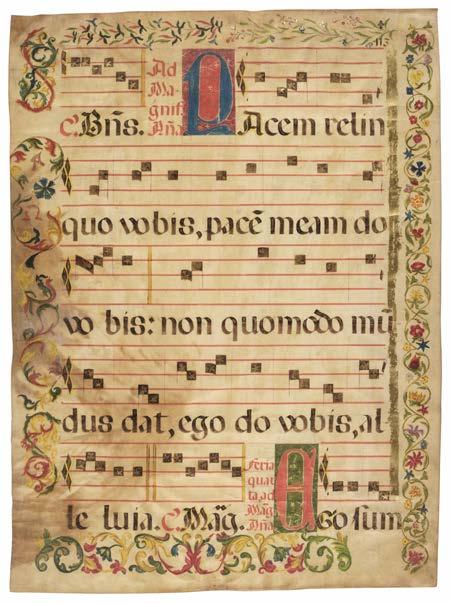 Ad
Ma-
gnif.
Añã
C. Bñs. PAcem relin
quo vobis, pacē meam do
vo bis: non quomodo mū
dus dat, ego do vobis, al
Feria
quar
ta, ad
Mag̃.
Añã
le luia. C. Mag̃. Ego sum